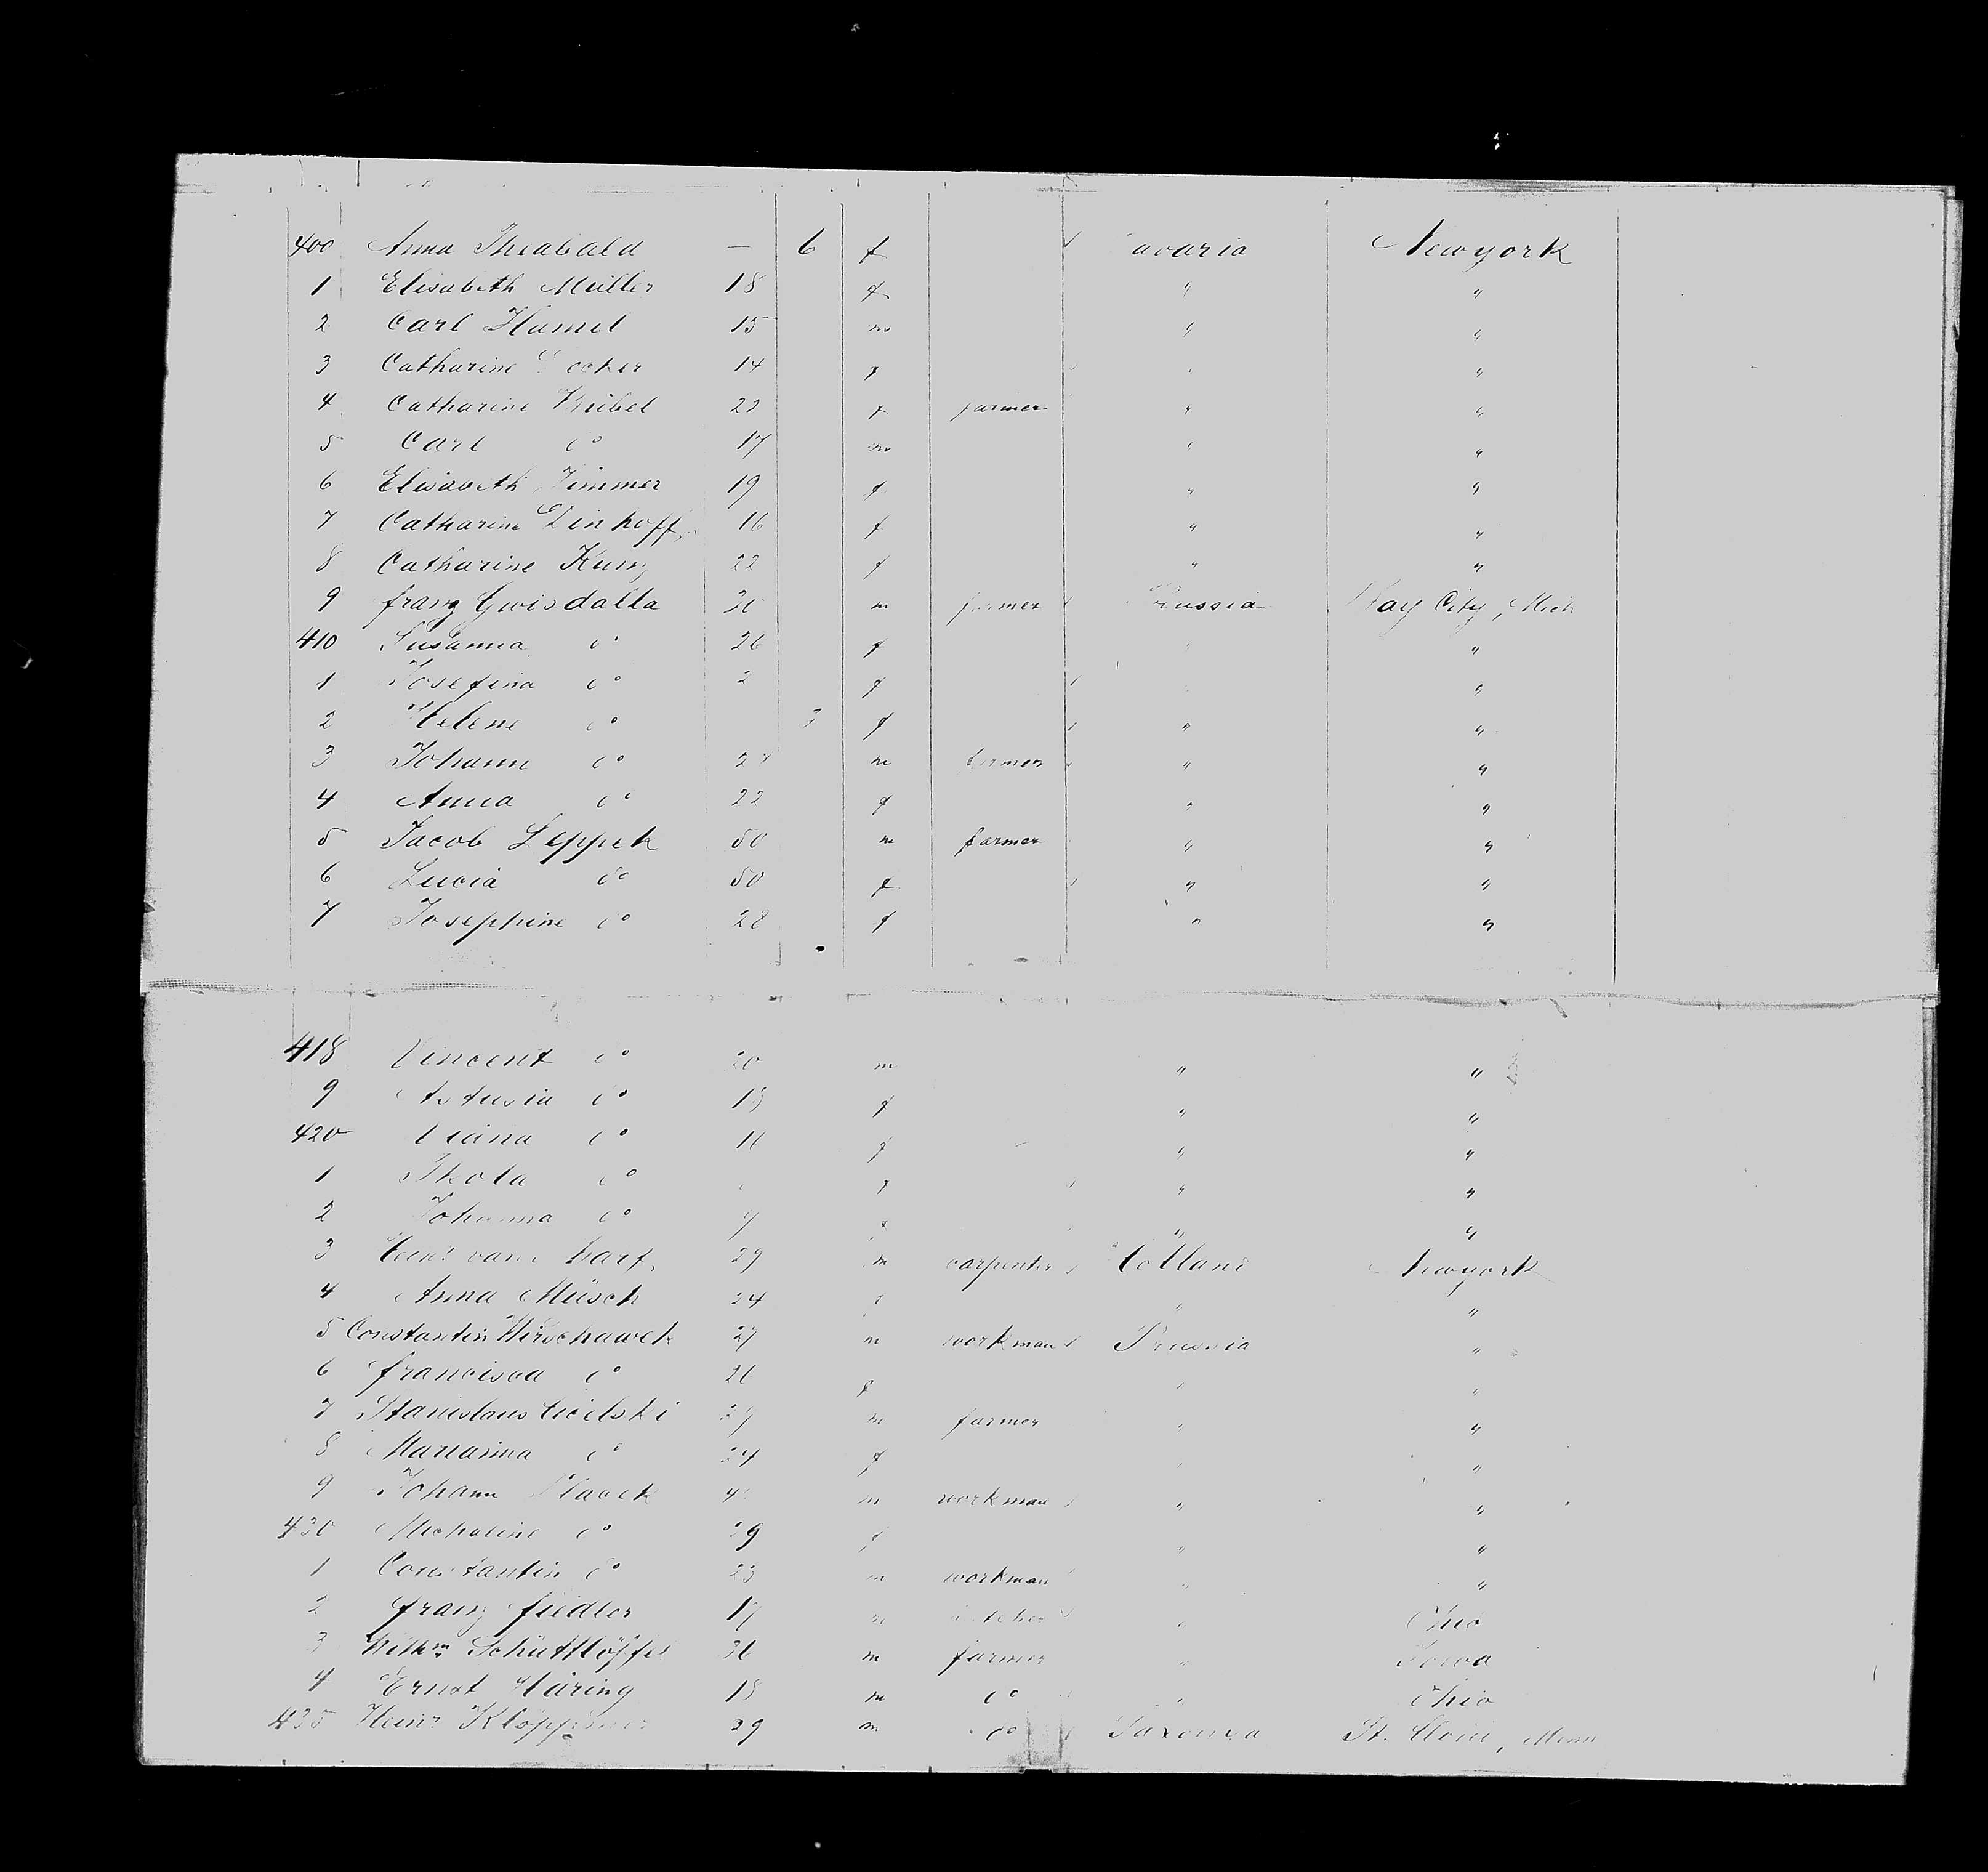 400 Anna Theabald — 6 f avaria Newyork
1 Elisabeth Müller 18 f " "
2 Carl Hamel 15 m " "
3 Catharine 14 f " "
4 Catharine 22 f farmer " "
5 Carl do 17 m " "
6 Elisabeth Zimmer 19 f " "
7 Catharine Dinhoff 16 f " "
8 Catharine Kunz 22 f " "
9 franz Gwisdalla 30 m farmer Prussia Bay City, Mich
410 Susanna do 26 f " "
1 Josefina do 2 f " "
2 Helene do 3 f " "
3 Johann do m farmer " "
4 Anna do 22 f " "
5 Jacob Leppek 50 m farmer " "
6 Lucia do 50 f " "
7 Josephine do 28 f " "
418 Vincent do 20 m " "
9 do f " "
420 do f " "
1 Thola do f " "
2 Johanna do 9 f " "
3 29 m carpenter Holland Newyork
4 Anna Müsch 24 f " "
5 Constantin Wirschawek 27 m workman Prussia "
6 francisca do 26 f " "
7 Stanislaus Cicelski m farmer " "
8 Marianna do 24 f " "
9 Johann m workman " "
430 Michaline do 29 f " "
1 Constantin do 23 m workman " "
2 franz fiedler 17 m " Ohio
3 Wilhm Schüttlöffel 36 m farmer " Iowa
4 Ernst Häring 18 m do " Ohio
435 Heinr 29 m do Saxonia St. , Minn